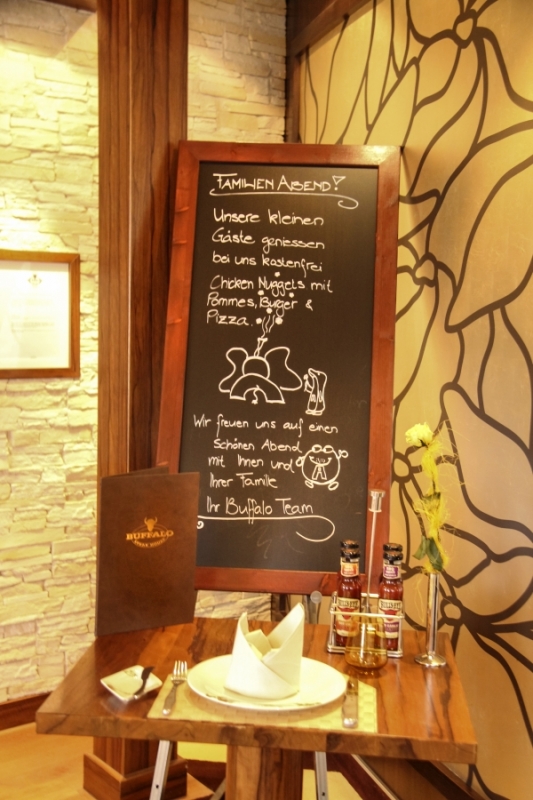 Familien Abend!
Unsere kleinen
Gäste geniessen
bei uns kostenfrei
Chicken Nuggels mit
Pommes, Burger &
Pizza.
Wir freuen uns auf einen
schönen Abend
mit Ihnen und
Ihrer Familie
Ihr Buffalo Team
BUFFALO
STEAK HOUSE